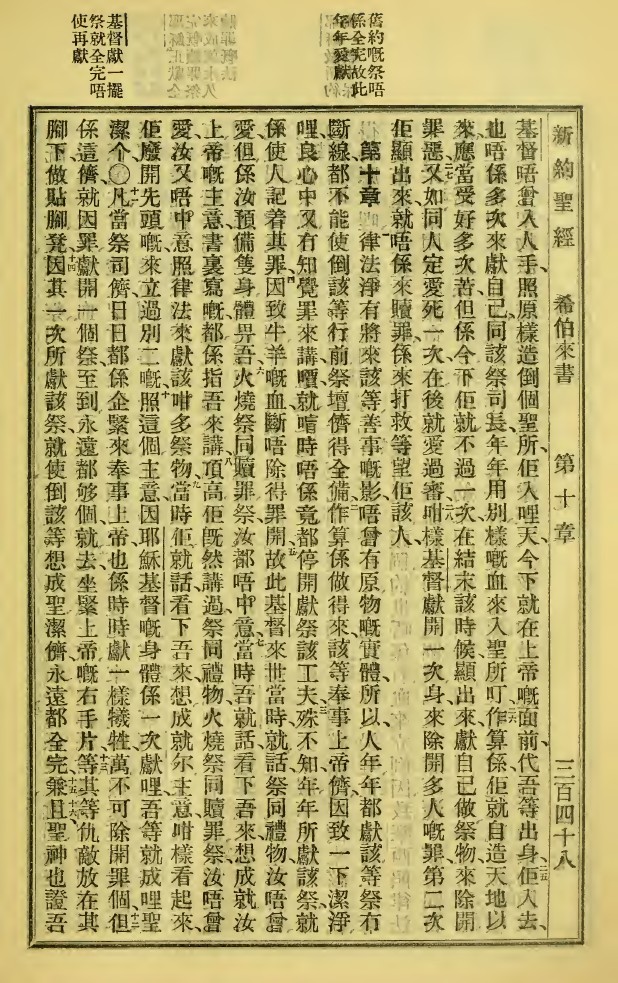 舊約嘅祭唔
係全完故此
年年愛獻
基督獻一擺
祭就全完唔
使再獻
新約聖經 希伯來書 第十章 三百四十八
基督唔曾入人手、照原樣造倒個聖所、佢入哩天、今下就在上帝嘅面前、代吾等出身、二五佢入去、
也唔係多次來獻自己、同該祭司長、年年用別樣嘅血來入聖所、二六叮作算係佢就自造天地以
來、應當受好多次苦、但係今下佢就不過一次、在結末該時候顯出來、獻自己做祭物來除開
罪惡、二七又如同人定愛死一次、在後就愛過審、二八咁樣基督獻開一次身、來除開多人嘅罪、第二次
佢顯出來、就唔係來贖罪、係來打救等望佢該人、
第十章 律法淨有將來該等善事嘅影、唔曾有原物嘅實體、所以人年年都獻該等祭、冇
斷線都不能使倒該等行前祭壇儕得全備、二作算係做得來、該等奉事上帝儕、因致一下潔淨
哩、良心中又冇知覺罪來講嚿、就啱時唔係竟都停開獻祭該工夫、三殊不知年年所獻該祭、就
係使人記着其罪、四因致牛羊嘅血、斷唔除得罪開、五故此基督來世當時就話、祭同禮物汝唔曾
愛、但係汝預備隻身體畀吾、六火燒祭同贖罪祭、汝都唔中意、七當時吾就話、看下吾來想成就汝
上帝嘅主意、書裏寫嘅都係指吾來講、八頂高佢既然講過、祭同禮物火燒祭同贖罪祭、汝唔曾
愛、汝又唔中意、照律法來獻該咁多祭物、九當時佢就話、看下吾來想成就尔主意、咁樣看起來、
佢廢開先頭嘅、來立過別二嘅、十照這個主意、因耶穌基督嘅身體、係一次獻哩、吾等就成哩聖
潔个、〇十一凡當祭司儕、日日都係企緊來奉事上帝、也係時時獻一樣犧牲、萬不可除開罪個、十二但
係這儕、就因罪獻開一個祭、至到永遠都够個、就去坐緊上帝嘅右手片、十三等其等仇敵、放在其
腳下做貼腳凳、十四因其一次所獻該祭、就使倒該等想成聖潔儕、永遠都全完、十五十六兼且聖神也證吾